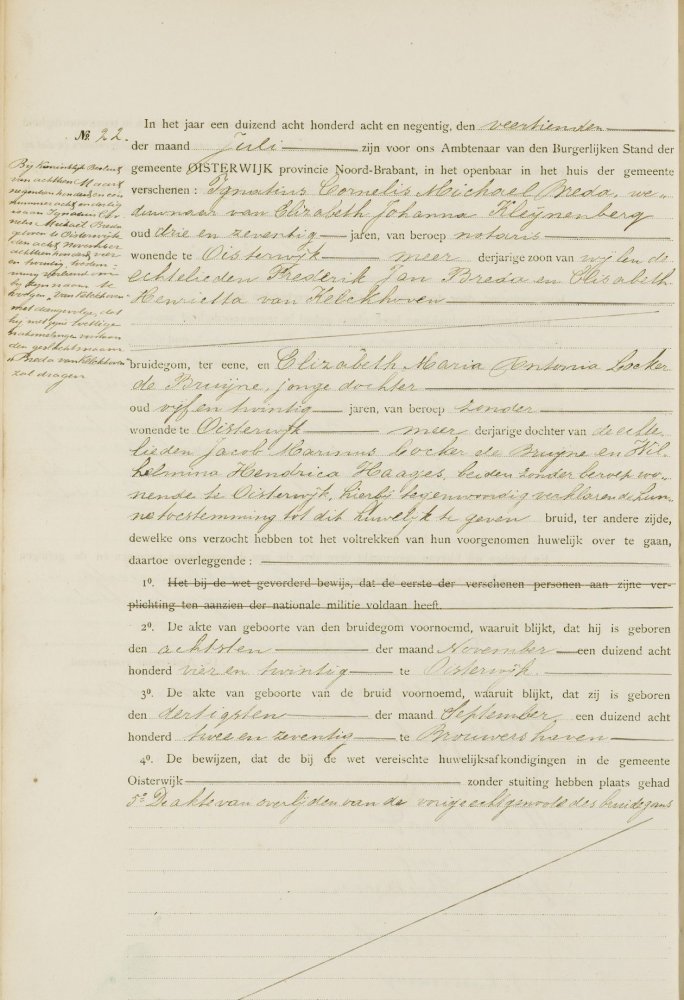 № 22.
Bij Koninklijk Besluit
van achttien Maart
negentien honderd en een
nummer acht en dertig
is aan Ignatius Cor-
nelis Michael Breda
geboren te Oisterwijk
den acht November
achttien honderd vier
en twintig
verleend om
bij zijn naam te
voegen "van Kelckhoven"
met dat
hij met zijne wettige
nakomelingen voortaan
den geslachtsnaam
"Breda van Kelckhoven"
zal dragen
In het jaar een duizend acht honderd acht en negentig, den veertienden
der maand Juli zijn voor ons Ambtenaar van den Burgerlijken Stand der
gemeente OISTERWIJK provincie Noord-Brabant, in het openbaar in het huis der gemeente
verschenen : Ignatius Cornelis Michael Breda, we-
duwnaar van Elizabeth Johanna Kleijnenberg
oud drie en zeventig jaren, van beroep notaris
wonende te Oisterwijk meer derjarige zoon van wijlen de
echtelieden Frederik Jan Breda en Elisabeth
Henrietta van Kelckhoven
bruidegom, ter eene, en Elizabeth Maria Antonia Locker
de Bruijne, jonge dochter
oud vijf en twintig jaren, van beroep zonder
wonende te Oisterwijk meer derjarige dochter van de echte-
lieden Jacob Marinus Locker de Bruijne en Wil-
helmina Hendrica Haages, beiden zonder beroep wo-
nende te Oisterwijk, hierbij tegenwoordig verklarende hun-
ne toestemming tot dit huwelijk te geven bruid, ter andere zijde,
dewelke ons verzocht hebben tot het voltrekken van hun voorgenomen huwelijk over te gaan,
daartoe overleggende :
1⁰. Het bij de wet gevorderd bewijs, dat de eerste der verschenen personen aan zijne ver-
plichting ten aanzien der nationale militie voldaan heeft.
2⁰. De akte van geboorte van den bruidegom voornoemd, waaruit blijkt, dat hij is geboren
den achtsten der maand November een duizend acht
honderd vier en twintig te Oisterwijk.
3⁰. De akte van geboorte van de bruid voornoemd, waaruit blijkt, dat zij is geboren
den dertigsten der maand September, een duizend acht
honderd twee en zeventig te Brouwershaven
4⁰. De bewijzen, dat de bij de wet vereischte huwelijksafkondigingen in de gemeente
Oisterwijk zonder stuiting hebben plaats gehad
5⁰ De akte van overlijden van de vorige echtgenoote des bruidegoms